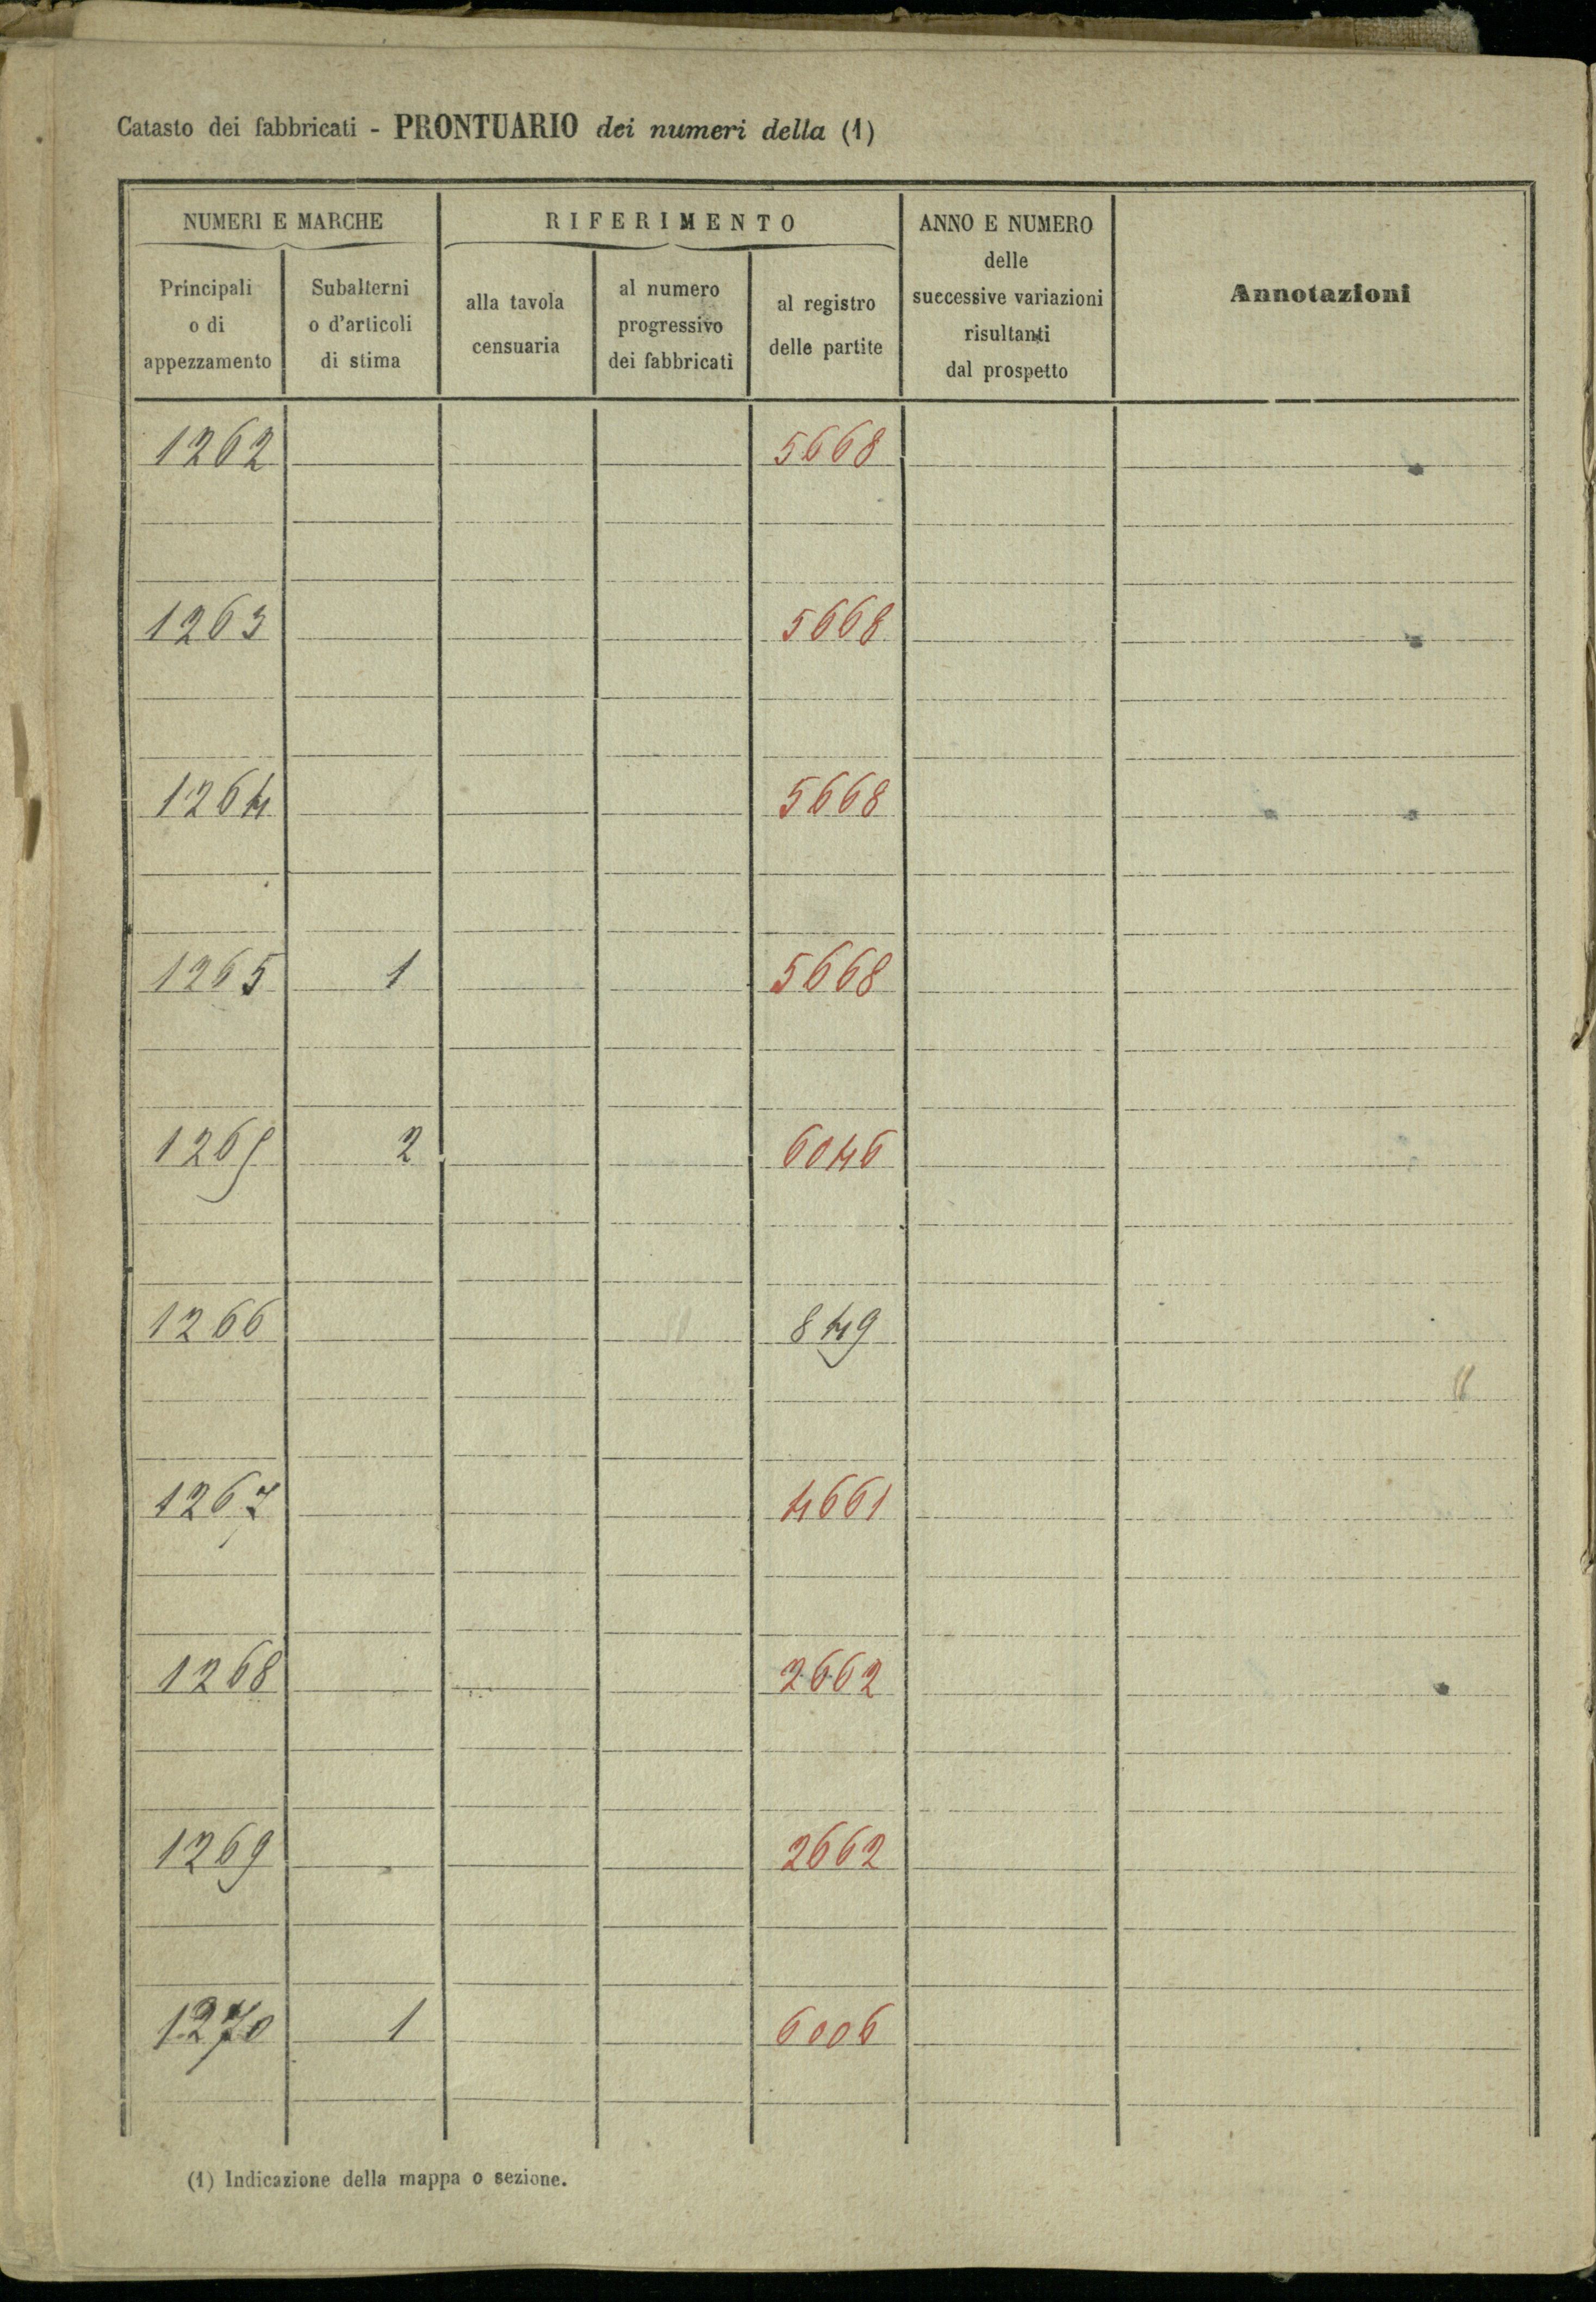 Catasto dei fabbricati - PRONTUARIO dei numeri della (1)
NUMERI E MARCHE
Principali
o di
appezzamento
Subalterni
o d'articoli
di stima
RIFERIMENTO
alla tavola
censuaria
al numero
progressivo
dei fabbricati
al registro
delle partite
ANNO E NUMERO
delle
successive variazioni
risultanti
dal prospetto
Annotazioni
1262 5668
1263 5668
1264 5668
1265 1 5668
1265 2 6046
1266 849
1267 4661
1268 2662
1269 2662
1270 1 6006
(1) Indicazione della mappa o sezione.